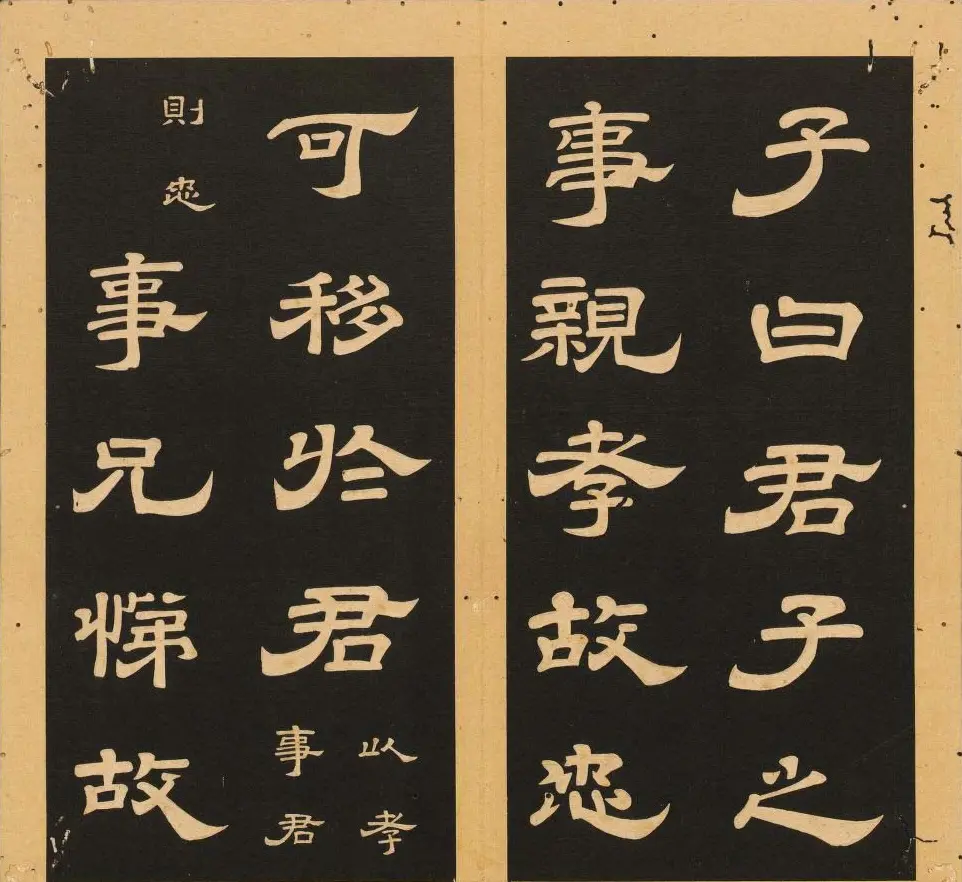 子曰君子之
事親孝故忠
可移於君
以孝
事君
則忠
事兄悌故